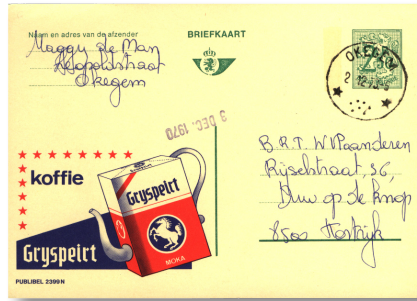 Naam en adres van de afzender
Maggy de Man
Leopoldstraat
Okegem
BRIEFKAART
OKEGEM
3 DEC. 1970
B.R.T. W Vlaanderen
Rijselstraat, 36,
Duw op de knop
8500 Kortrijk
koffie
Gryspeirt
Gryspeirt
MOKA
PUBLIBEL 2399 N